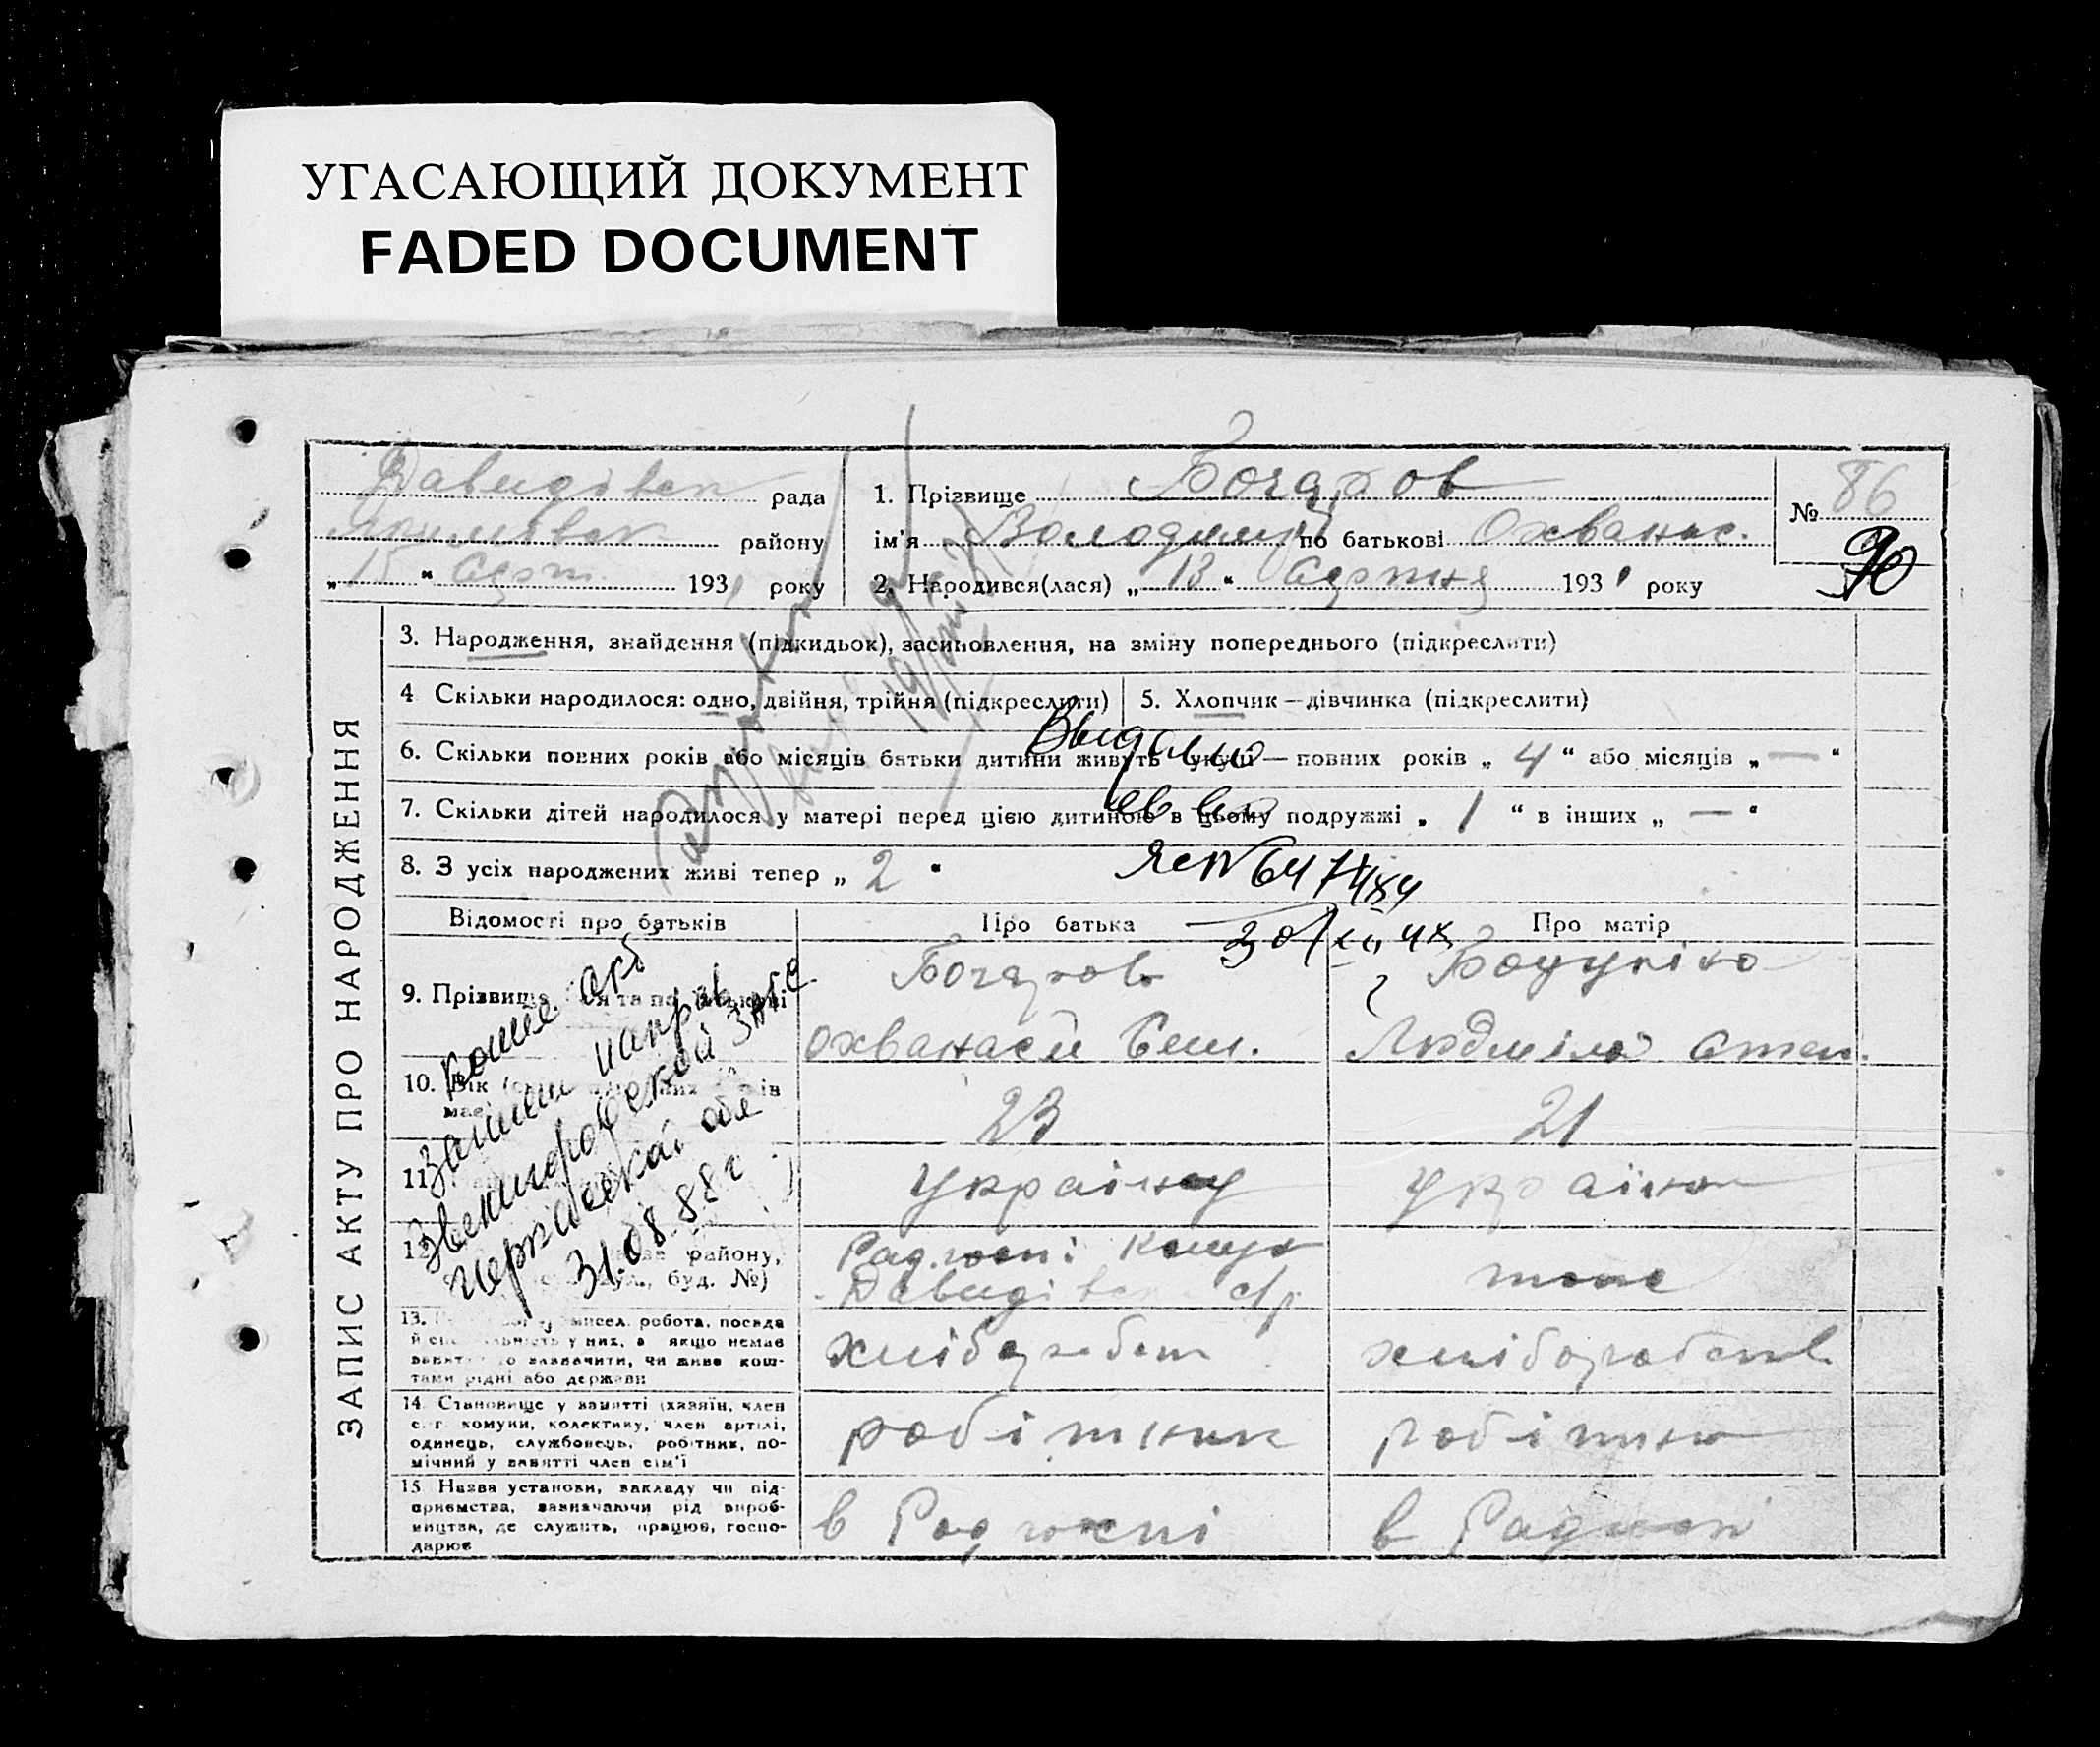 УГАСАЮЩИЙ ДОКУМЕНТ
FADED DOCUMENT
Давидівск рада
району
„ 15 “ Серп. 1931 року
1. Прізвище Бочаров
ім'я Володимир по батькові Охванас.
2. Народився(лася) „ 13 “ Серпня 1931 року
№ 86
90
ЗАПИС АКТУ ПРО НАРОДЖЕННЯ
3. Народження, знайдення (підкидьок), засиновлення, на зміну попереднього (підкреслити)
4 Скільки народилося: одно, двійня, трійня (підкреслити)
5. Хлопчик — дівчинка (підкреслити)
6. Скільки повних років або місяців батьки дитини живуть укупі — повних років „ 4 “ або місяців „ — “
7. Скільки дітей народилося у матері перед цією дитиною в цьому подружжі „ 1 “ в інших „ — “
8. З усіх народжених живі тепер „ 2 “
Выдано
св во
30/XII 48
Відомості про батьків
Про батька
Про матір
9. Прізвище та по батькові
Бочаров
Охванасій Сем.
Людміла Степ.
10. Вік
має
23
21
11
Українец
Українка
12
району,
буд. №)
Давидівск с/р.
тоже
13. робота, посада
у них, а якщо немає
зазначити, чи живе кош-
тами рідні або держави
хлібороб
14. Становище у занятті (хазяїн, член
с. г. комуни, колективу, член артілі,
одинець, службовець, робітник, по-
мічний у занятті член сім'ї
робітник
робітниця
15 Назва установи, закладу чи під-
приємства, зазначаючи рід вироб-
ництва, де служить, працює, госпо-
дарює
в Радгоспі
в Радгосп
напрв
Звенигородской ЗАГС
Черкасской обл
31.08.88 г